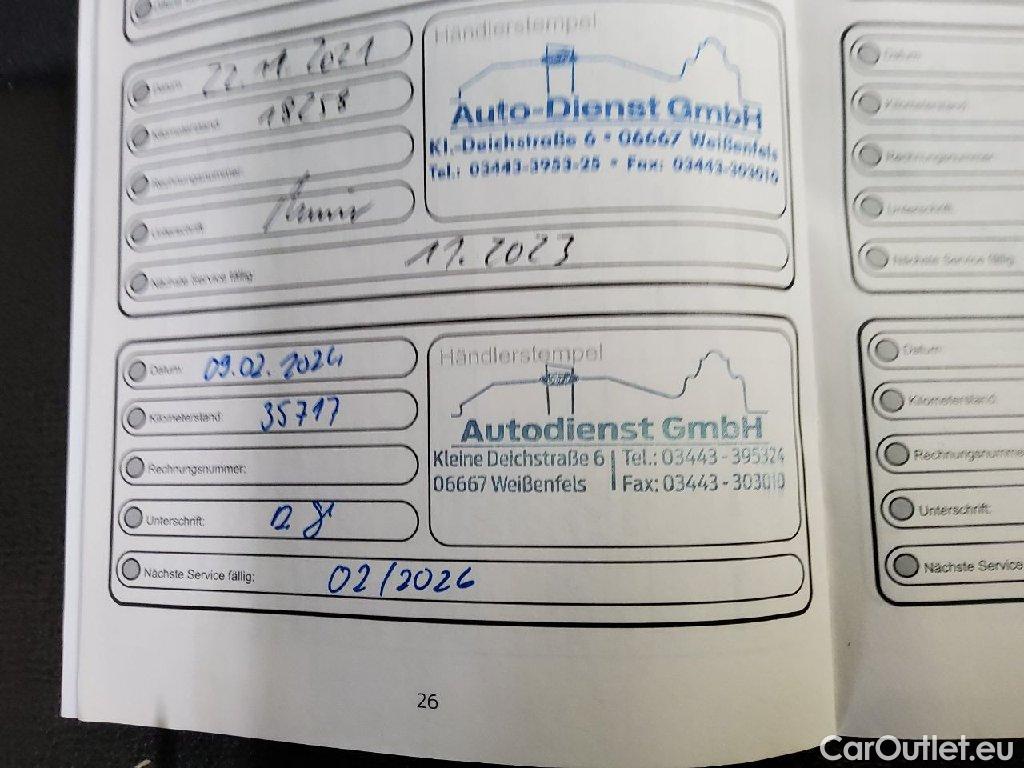 Händlerstempel
Datum: 22.11.2021
Kilometerstand: 18258
Rechnungsnummer:
Unterschrift:
Nächste Service fällig: 11.2023
Auto-Dienst GmbH
Kl.-Deichstraße 6 • 06667 Weißenfels
Tel.: 03443-3953-25 • Fax: 03443-303010
Händlerstempel
Datum: 09.02.2024
Kilometerstand: 35717
Rechnungsnummer:
Unterschrift:
Nächste Service fällig: 02/2026
Autodienst GmbH
Kleine Deichstraße 6 | Tel.: 03443 - 395324
06667 Weißenfels | Fax: 03443 - 303010
Datum:
Kilometerstand:
Rechnungsnummer:
Unterschrift:
Nächste Service fällig:
Datum:
Kilometerstand:
Rechnungsnumme
Unterschrift:
Nächste Service
26
CarOutlet.eu